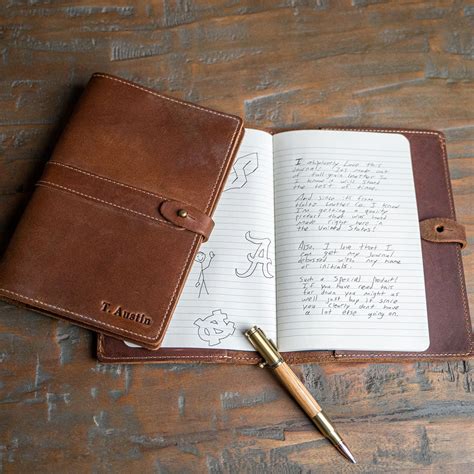 T. Austin
A
I absolutely Love this
journal! Its made out
of full grain leather so
I know it will stand
the test of time.
And since it's from
Holtz Leather Co. I know
I'm getting a quality
product that was hand
made right here in
the United States!
Also, I love that I
can get my journal
with my name
or initials.
Such a special product!
If you have read this
far down you might as
well just buy it since
you clearly dont have
a lot else going on.